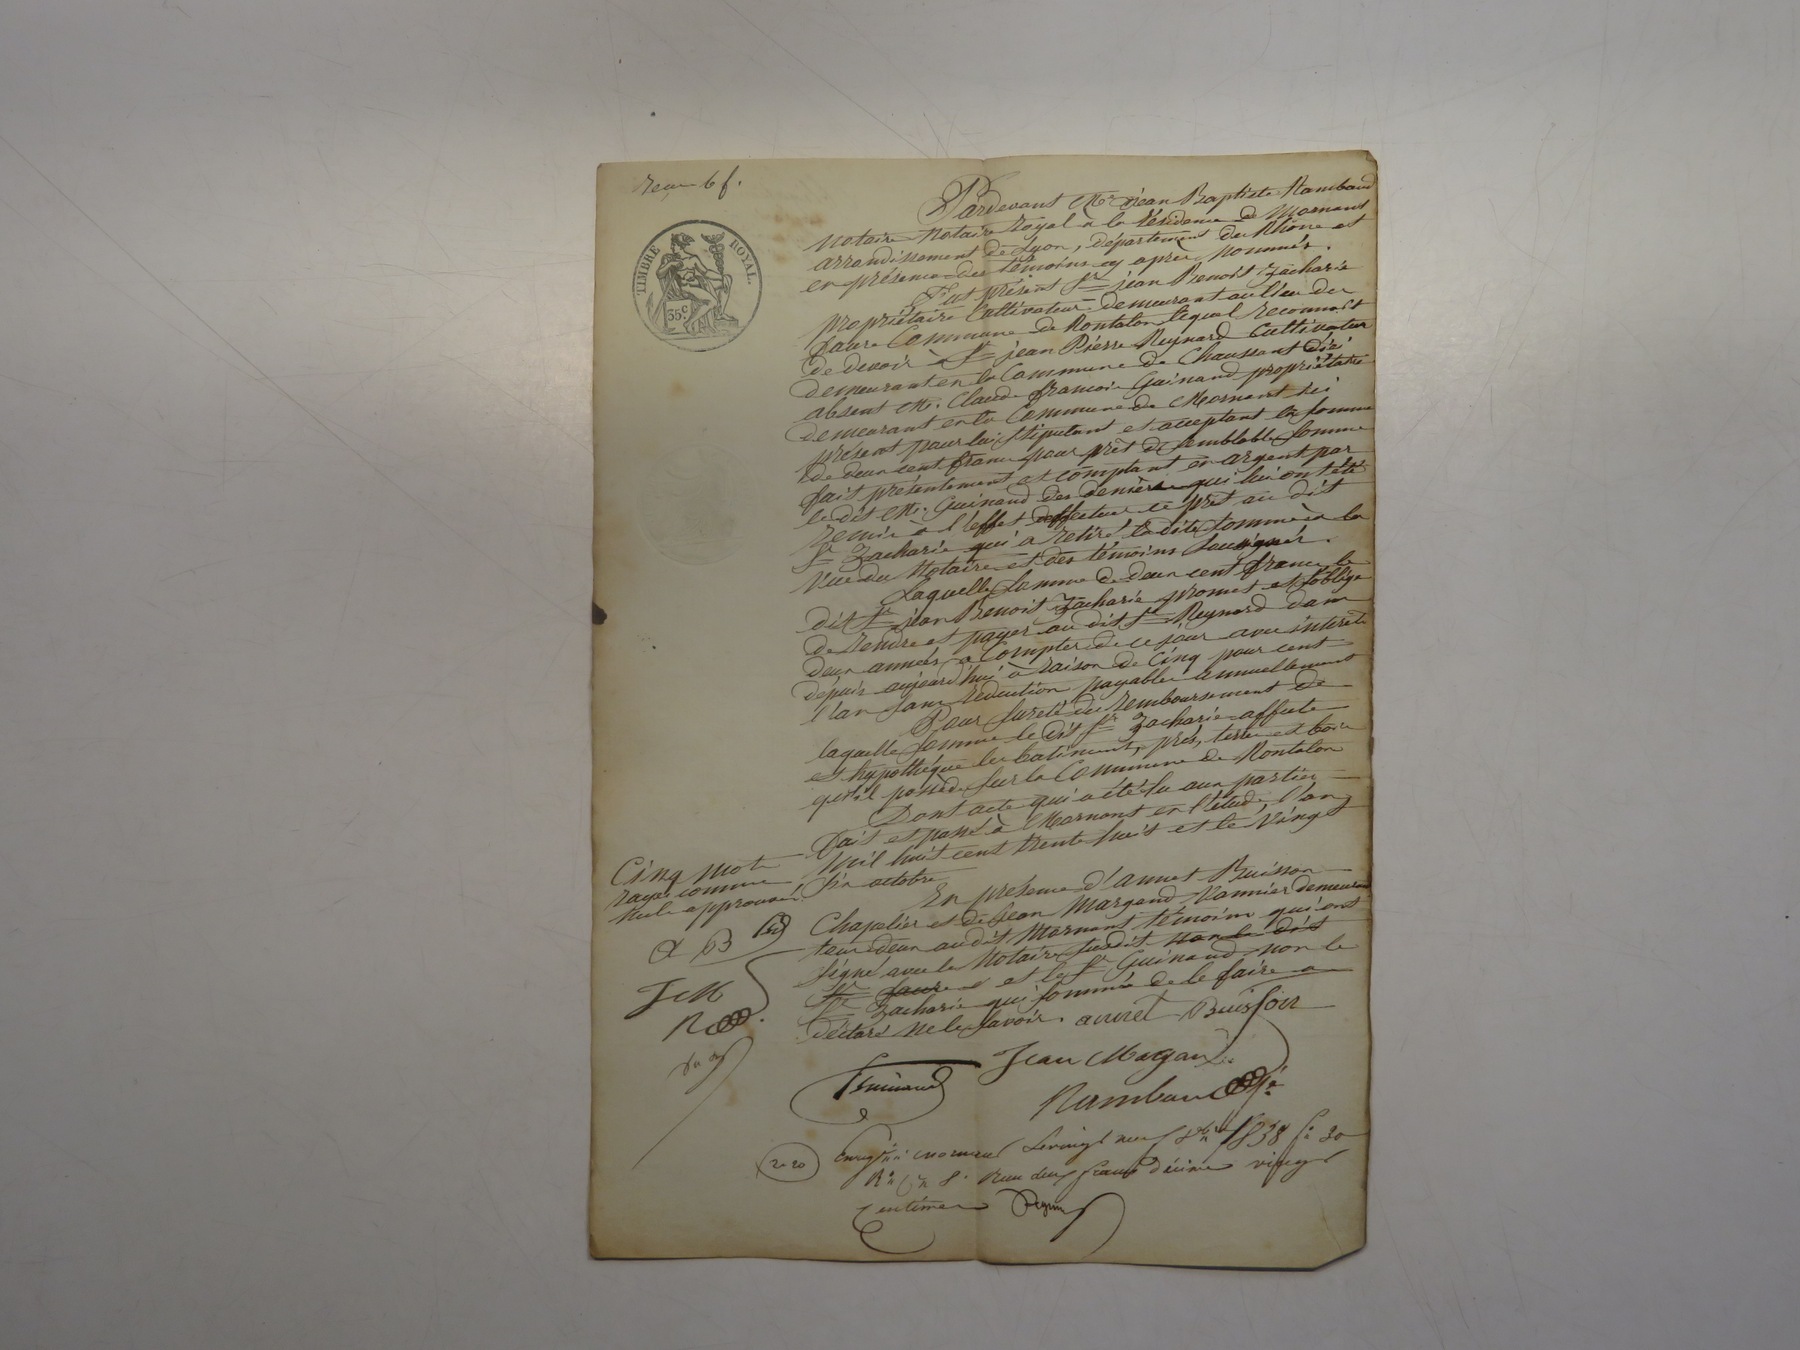 reçu 6 f.
TIMBRE ROYAL.
35 c
Pardevant Me jean Baptiste Rambaud
Notaire Notaire Royal a la résidence de Mornant
arrondissement de Lyon, département du Rhône et
en présence des témoins cy après nommés.
Fut présent Sr jean Benoit Zacharie
propriétaire Cultivateur demeurant au lieu du
faure Commune de Rontalon lequel reconnoit
de devoir à Sr jean Pierre Reynard Cultivateur
demeurant en la Commune de Chaussant d'ici
absent Mr. Claude françois Guinand propriétaire
demeurant en la Commune de Mornant ici
présent pour lui stipulant et acceptant la somme
de deux cent francs pour prêt de semblable somme
fait présentement et comptant en argent par
le dit Mr. Guinand des deniers qui lui ont été
remis à l'effet d'effectuer ce prêt au dit
Sr Zacharie qui a retiré la dite somme à la
vue du Notaire et des témoins soussignés.
Laquelle somme de deux cent francs le
dit Sr jean Benoit Zacharie promet et s'oblige
de rendre et payer au dit Sr Reynard dans
deux années a Compter de ce jour avec intérêt
depuis aujourd'hui à raison de Cinq pour cent
l'an sans réduction payable annuellement
Pour sureté du remboursement de
laquelle somme le dit Sr Zacharie affecte
et hypothéque les batiments, prés, terres et bois
qu'il possède sur la Commune de Rontalon
Dont acte qui a été lu aux parties
fait et passé à Mornant en l'étude, l'an
Mil huit cent trente huit et le vingt
six octobre
En présence d'annet Buisson
Chapelier et de Jean Margand Vannier demeurant
tous deux au dit Mornant témoins qui ont
signé avec le Notaire susdit non le dit
Sr faure et le Sr Guinand non le
Sr Zacharie qui sommé de le faire a
déclaré ne le savoir. annet Buisson
Cinq mots
rayés comme
nuls approuvés
a B
J M
R
Jean Margand
Guinand
Rambaud
2-20
Enregistré a mornant le vingt neuf 8bre 1838 fo 30
Ro Ce 8. Reçu deux francs décime vingt
centimes